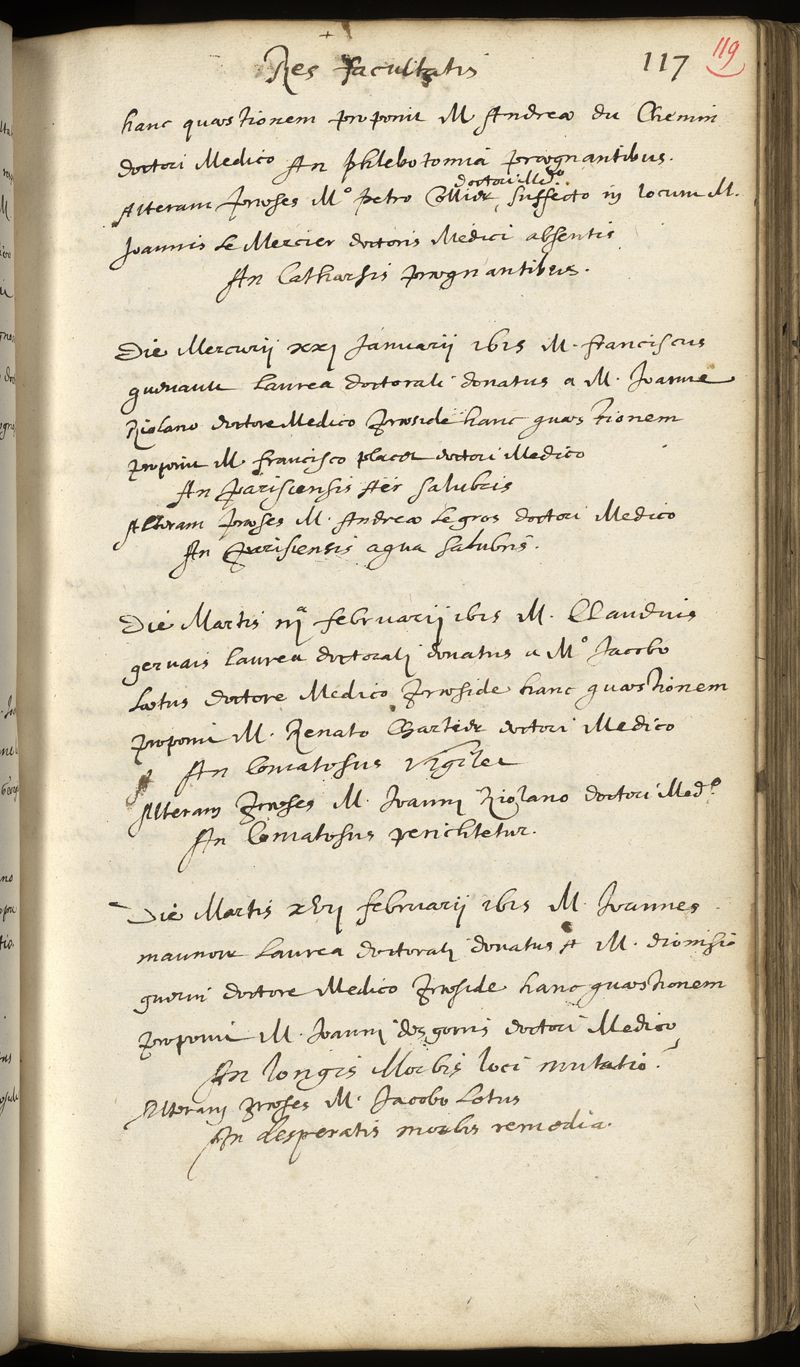 Res facultatis 117 119
hanc quæstionem proponit M Andreæ du Chemin
doctori Medico An phlebotomia prægnantibus.
doctori Med°.
Alteram præses M° Petro Collier, suffecto in locum M.
Joannis Le Mercier doctoris Medici absentis
An Catharsis prægnantibus.
Die Mercurij xxj Januarij 1615 M. franciscus
guenault laurea doctorali donatus a M. Joanne
Riolano doctore Medico præside hanc quæstionem
proponit M. francisco placet doctori Medico
An parisiensis Aër salubris
Alteram præses M. Andreæ Le gros doctori Medico
An parisiensis aqua salubris.
Die Martis iijª februarij 1615 M. Claudius
gervais laurea doctorali donatus a M° Jacobo
Lætus doctore Medico præside hanc quæstionem
proponit M. Renato Chartier doctori Medico
An Comatosus vigilet
Alteram præses M. Joanni Riolano doctori Med°
An Comatosus periclitetur.
Die Martis xvij februarij 1615 M. Joannes
maunoir laurea doctorali donatus A M. dionisio
guerin doctore Medico præside hanc quæstionem
proponit M. Joanni des gorris doctori Medico,
An longis Morbis loci mutatio.
Alteram præses M. Jacobo Lætus
An desperatis morbis remedia.